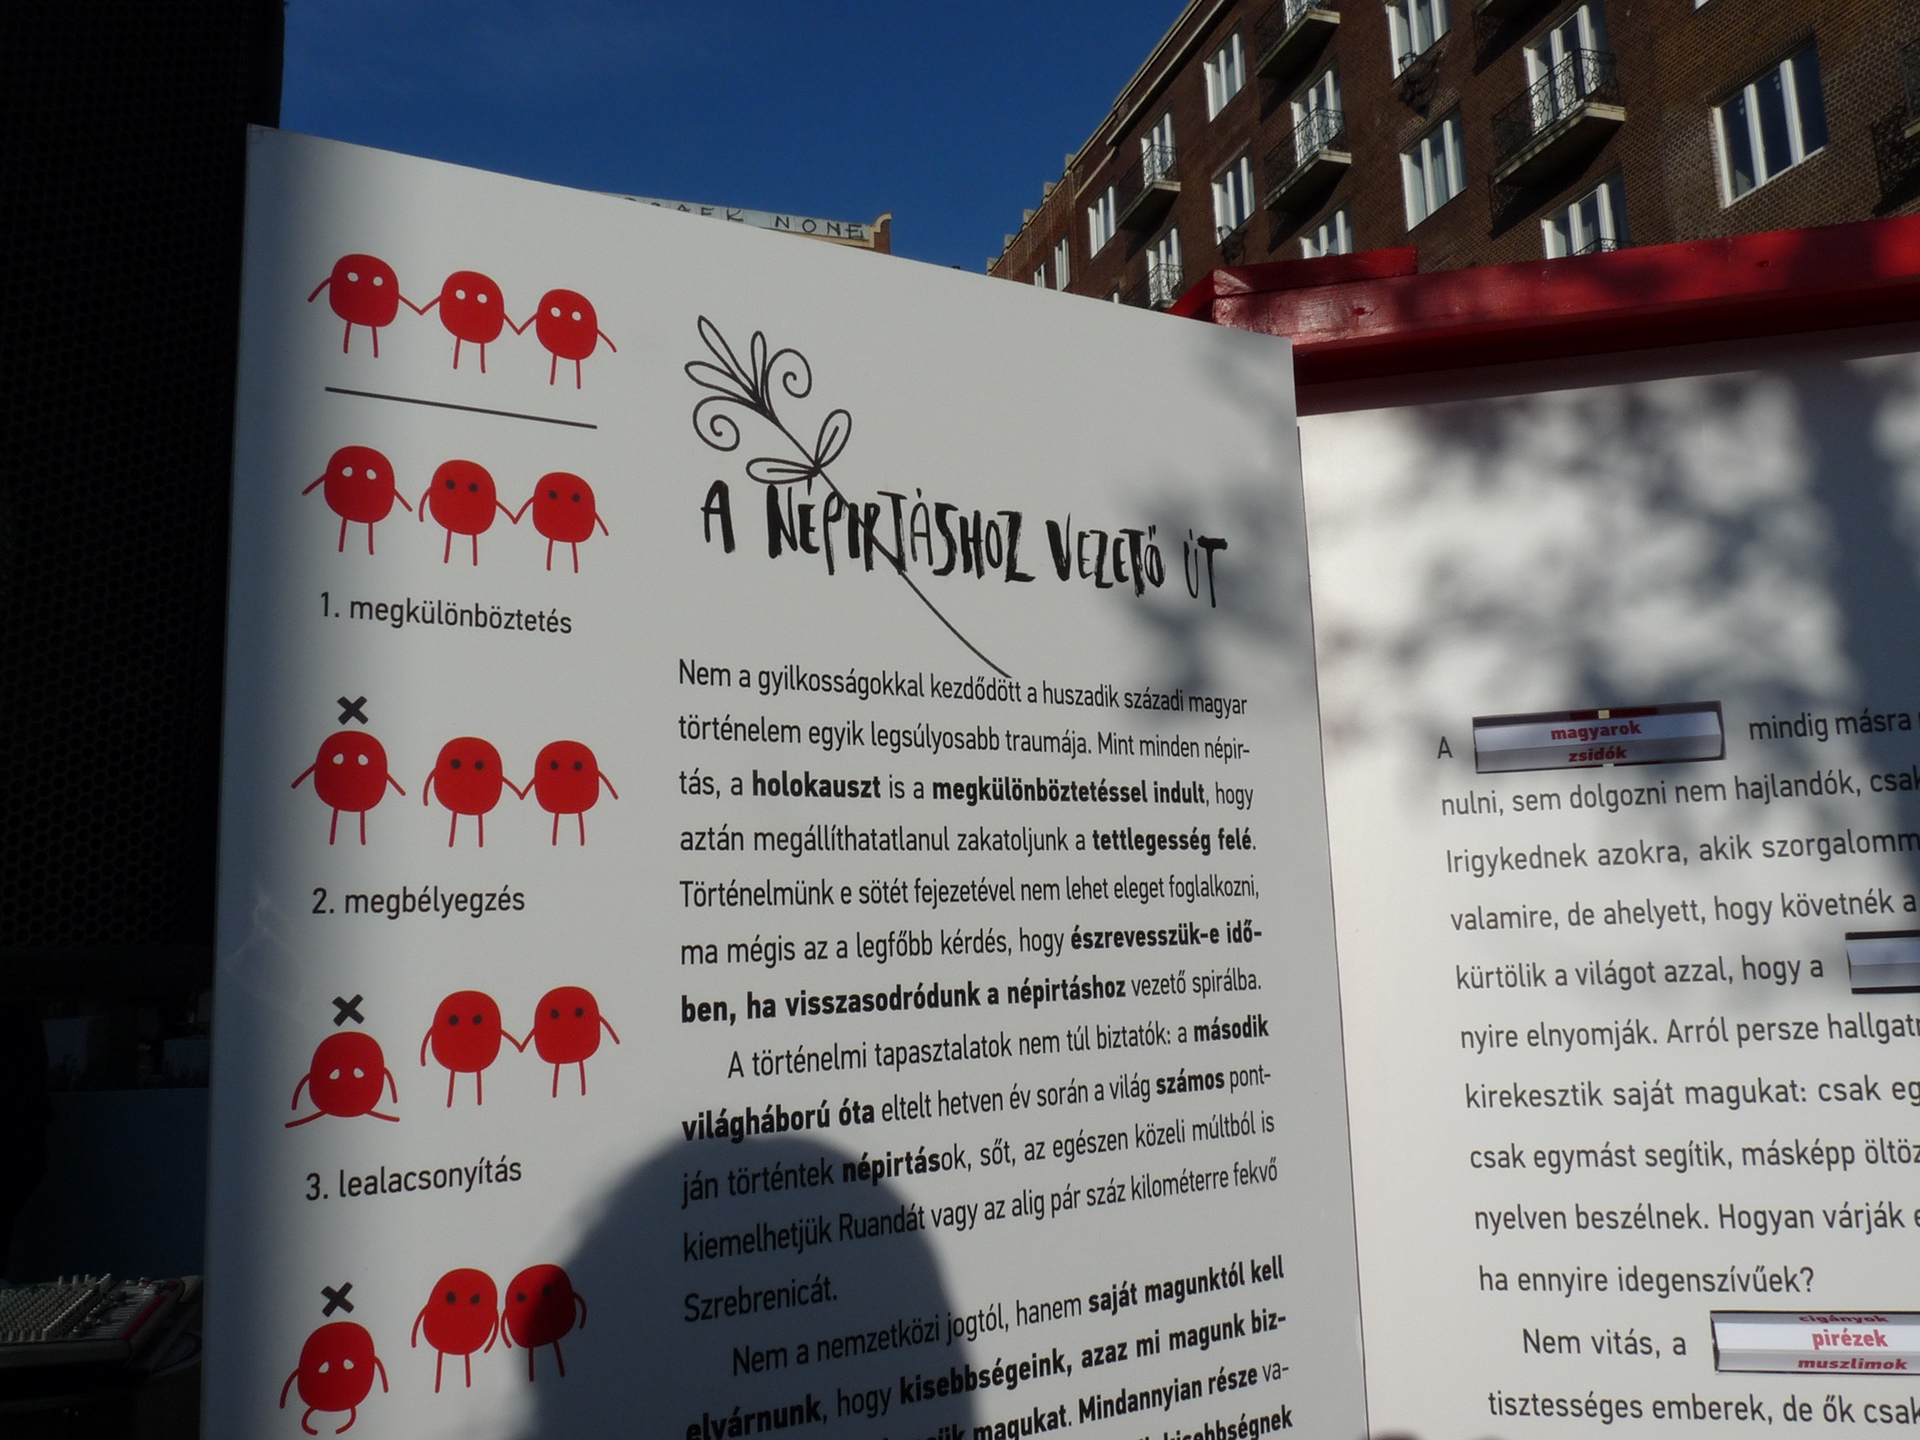 NONE
1. megkülönböztetés
2. megbélyegzés
3. lealacsonyítás
A NÉPIRTÁSHOZ VEZETŐ ÚT
Nem a gyilkosságokkal kezdődött a huszadik századi magyar
történelem egyik legsúlyosabb traumája. Mint minden népir-
tás, a holokauszt is a megkülönböztetéssel indult, hogy
aztán megállíthatatlanul zakatoljunk a tettlegesség felé.
Történelmünk e sötét fejezetével nem lehet eleget foglalkozni,
ma mégis az a legfőbb kérdés, hogy észrevesszük-e idő-
ben, ha visszasodródunk a népirtáshoz vezető spirálba.
A történelmi tapasztalatok nem túl biztatók: a második
világháború óta eltelt hetven év során a világ számos pont-
ján történtek népirtások, sőt, az egészen közeli múltból is
kiemelhetjük Ruandát vagy az alig pár száz kilométerre fekvő
Szrebrenicát.
Nem a nemzetközi jogtól, hanem saját magunktól kell
elvárnunk, hogy kisebbségeink, azaz mi magunk biz-
magukat. Mindannyian része va-
kisebbségnek
A magyarok mindig másra
zsidók
nulni, sem dolgozni nem hajlandók, csak
Irigykednek azokra, akik szorgalomm
valamire, de ahelyett, hogy követnék a
kürtölik a világot azzal, hogy a
nyire elnyomják. Arról persze hallgat
kirekesztik saját magukat: csak eg
csak egymást segítik, másképp öltöz
nyelven beszélnek. Hogyan várják e
ha ennyire idegenszívűek?
cigányok
Nem vitás, a pirézek
muszlimok
tisztességes emberek, de ők csak